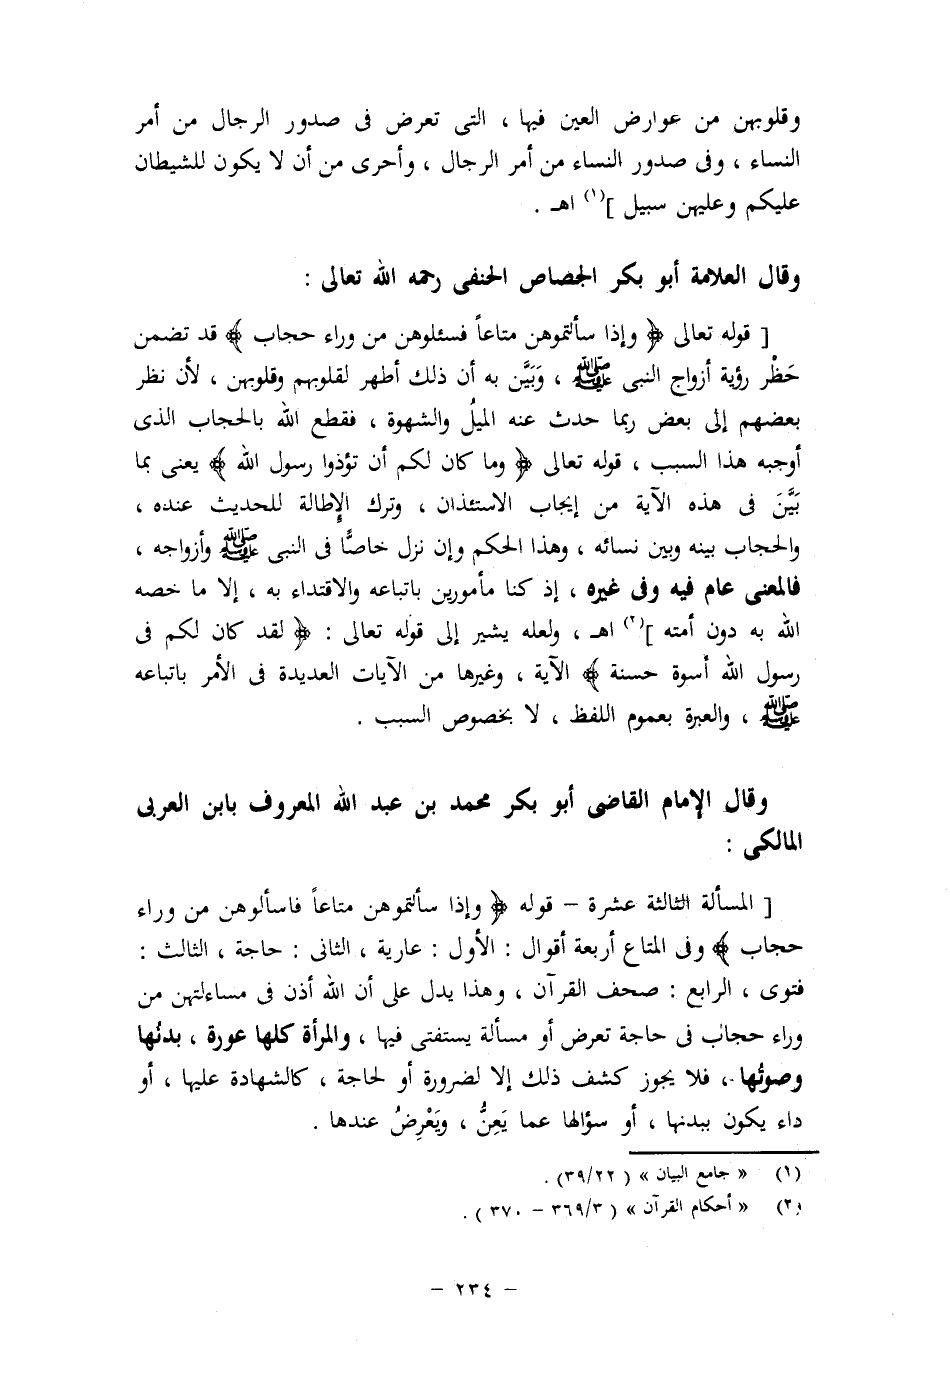 وقلوبهن من عوارض العين فيها ، التى تعرض فى صدور الرجال من أمر
النساء ، وفى صدور النساء من أمر الرجال ، وأحرى من أن لا يكون للشيطان
عليكم وعليهن سبيل ](١) اهـ .
وقال العلامة أبو بكر الجصاص الحنفى رحمه الله تعالى :
[ قوله تعالى ﴿ وإذا سألتموهن متاعاً فسئلوهن من وراء حجاب ﴾ قد تضمن
حَظْر رؤية أزواج النبى ﷺ ، وَبَيَّن به أن ذلك أطهر لقلوبهم وقلوبهن ، لأن نظر
بعضهم إلى بعض ربما حدث عنه الميلُ والشهوة ، فقطع الله بالحجاب الذى
أوجبه هذا السبب ، قوله تعالى ﴿ وما كان لكم أن تؤذوا رسول الله ﴾ يعنى بما
بَيَّنَ فى هذه الآية من إيجاب الاستئذان ، وترك الإطالة للحديث عنده ،
والحجاب بينه وبين نسائه ، وهذا الحكم وإن نزل خاصًّا فى النبى ﷺ وأزواجه ،
فالمعنى عام فيه وفى غيره ، إذ كنا مأمورين باتباعه والاقتداء به ، إلا ما خصه
الله به دون أمته ](٢) اهـ ، ولعله يشير إلى قوله تعالى : ﴿ لقد كان لكم فى
رسول الله أسوة حسنة ﴾ الآية ، وغيرها من الآيات العديدة فى الأمر باتباعه
ﷺ ، والعبرة بعموم اللفظ ، لا بخصوص السبب .
وقال الإمام القاضى أبو بكر محمد بن عبد الله المعروف بابن العربى
المالكى :
[ المسألة الثالثة عشرة – قوله ﴿ وإذا سألتموهن متاعاً فاسألوهن من وراء
حجاب ﴾ وفى المتاع أربعة أقوال : الأول : عارية ، الثانى : حاجة ، الثالث :
فتوى ، الرابع : صحف القرآن ، وهذا يدل على أن الله أذن فى مساءلتهن من
وراء حجاب فى حاجة تعرض أو مسألة يستفتى فيها ، والمرأة كلها عورة ، بدنُها
وصوتُها ، فلا يجوز كشف ذلك إلا لضرورة أو لحاجة ، كالشهادة عليها ، أو
داء يكون ببدنها ، أو سؤالها عما يَعِنُّ ، ويَعْرِضُ عندها .
(١) « جامع البيان » ( ٣٩/٢٢) .
(٢) « أحكام القرآن » ( ٣٦٩/٣ – ٣٧٠ ) .
– ٢٣٤ –